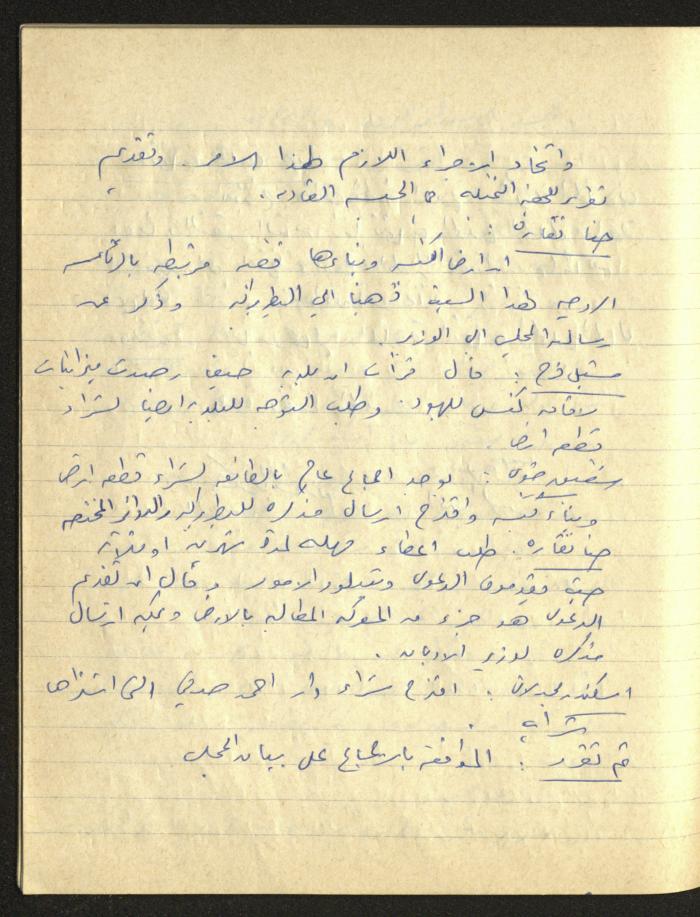 واتخاذ الاجراء اللازم لهذا الامر. وتقديم
تقرير للجنة الممثلة في الجلسة القادمة.
حنا نقارة :
ان ارض الكنيسة وبناءها قضية مرتبطة بالرئاسة
الروحية لهذا السبب ذهبنا الى البطريركية وذكر عن
رسالة المجلس الى الوزير.
: قال قرأت ان بلدية حيفا رصدت ميزانيات
لاقامة كنس لليهود. وطلب التوجه للبلدية ايضا لشراء
قطعة ارض.
شفيق خوري : يوجد اجماع عام بالطائفة لشراء قطعة ارض
وبناء كنيسة واقترح ارسال مذكرة للبطريركية والدوائر المختصة
حنا نقارة : طلب اعطاء مهلة لمدة شهرين او ثلاثة
حيث يقدمون الدعوى وتتبلور الامور وقال ان تقديم
الدعوى هو جزء من المعركة المطالبة بالارض ويمكن ارسال
مذكرة لوزير الاديان.
اسكندر مجدلاني : اقترح شراء دار احمد صدقي التي اشتراها

ثم تقرر : الموافقة بالاجماع على بيان المجلس